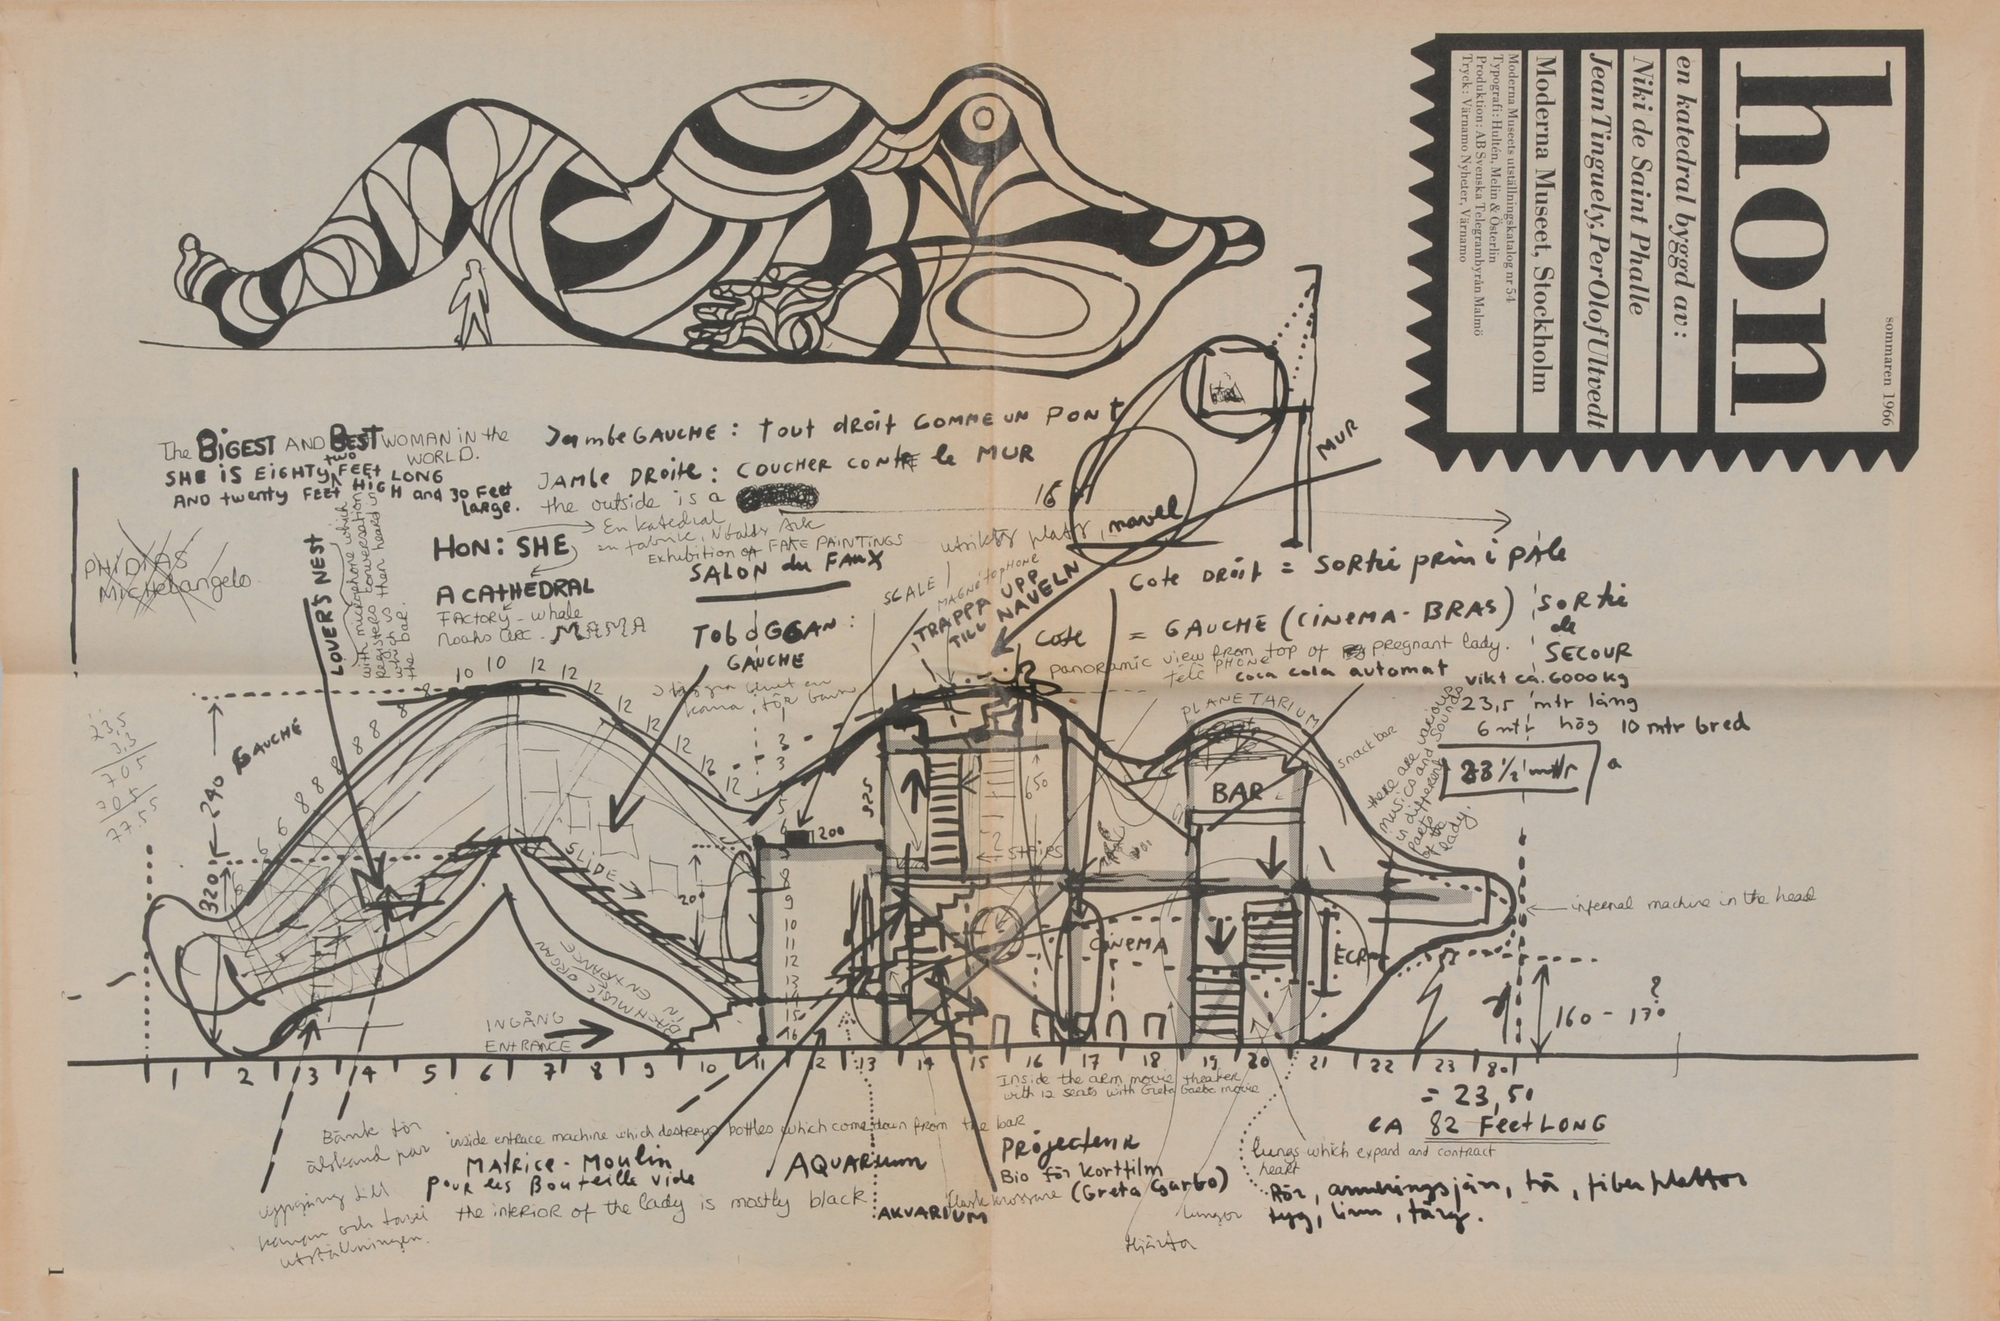 hon
sommaren 1966
en katedral byggd av:
Niki de Saint Phalle
Jean Tinguely, Per Olof Ultvedt
Moderna Museet, Stockholm
Moderna Museets utställningskatalog nr 54
Typografi: Hultén, Melin & Österlin
Produktion: AB Svenska Telegrambyrån Malmö
Tryck: Värnamo Nyheter, Värnamo
The BIGEST AND BEST WOMAN IN the
WORLD.
SHE iS EIGHTY two FEET LONG
AND twenty FEET HIGH and 30 Feet
large.
Jambe GAUCHE : tout droit COMME UN PONT
JAMBE DROITE : COUCHER CONTRE le MUR
the outside is a
En katedral
Exhibition of FAKE PAINTINGS
SALON du FAUX
PHIDIAS
Michelangelo
LOVER'S NEST
with microphone which
registers conversation
which is then heard in
the bar.
HON: SHE
A CATHEDRAL
FACTORY - whale
Noahs arc - MAMA
TOBOGGAN :
GAUCHE
SCALE
MAGNETOPHONE
TRAPPA UPP
TILL NAVELN
16
navel
MUR
COTE DROIT = SORTIE principale
COTE = GAUCHE (CINEMA-BRAS)
SORTIE
de
SECOUR
panoramic view from top of pregnant lady.
TELEPHONE
coca cola automat
vikt ca. 6000 kg
23,5 mtr lång
6 mtr hög 10 mtr bred
23 1/2 mtr
PLANETARIUM
snack bar
there are various
musics and sounds
in different
parts of
the
lady.
23,5
3,3
705
705
77.55
GAUCHE
240
320
8 10 10 12 12 12 12 12 12 12
SLIDE
200
1200
525
650
STAIRS
BAR
CINEMA
ECR
infernal machine in the head
BACH MUSIC ORGAN
IN ENTRANCE
INGÅNG
ENTRANCE
160 - 170 ?
8 9 10 11 12 13 14 15 16
1 2 3 4 5 6 7 8 9 10 11 12 13 14 15 16 17 18 19 20 21 22 23 80
= 23,50
CA 82 Feet LONG
Inside the arm movie theater
with 12 seats with Greta Garbo movie
Bänk för
älskand par
inside entrace machine which destroys bottles which come down from the bar
MATRICE - MOULIN
pour les Bouteille vide
the interior of the lady is mostly black
AQUARIUM
AKVARIUM
Projecteur
Bio för kortfilm
(Greta Garbo)
Flaskkrossare
lungs which expand and contract
heart
lungor
Hjärta
Rör, armeringsjärn, trä, fiberplattor
tyg, lim, färg.
uppgång till
utställningen.
1